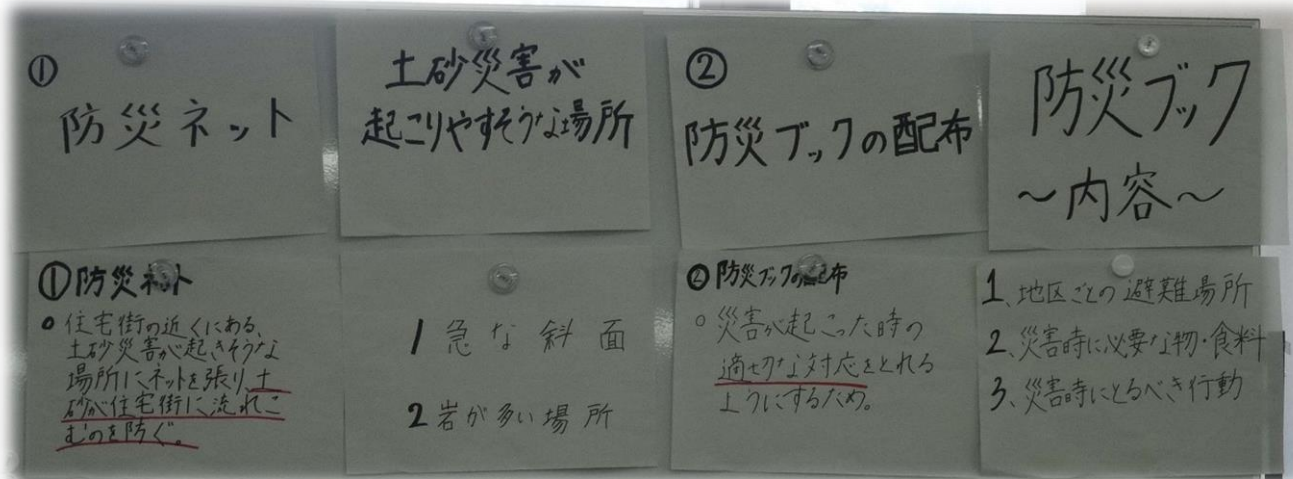 ①
防災ネット
土砂災害が
起こりやすそうな場所
②
防災ブックの配布
防災ブック
～内容～
①防災ネット
○住宅街の近くにある、
土砂災害が起きそうな
場所にネットを張り、土
砂が住宅街に流れこ
むのを防ぐ。
1 急な斜面
2 岩が多い場所
②防災ブックの配布
○災害が起こった時の
適切な対応をとれる
ようにするため。
1、地区ごとの避難場所
2、災害時に必要な物・食料
3、災害時にとるべき行動